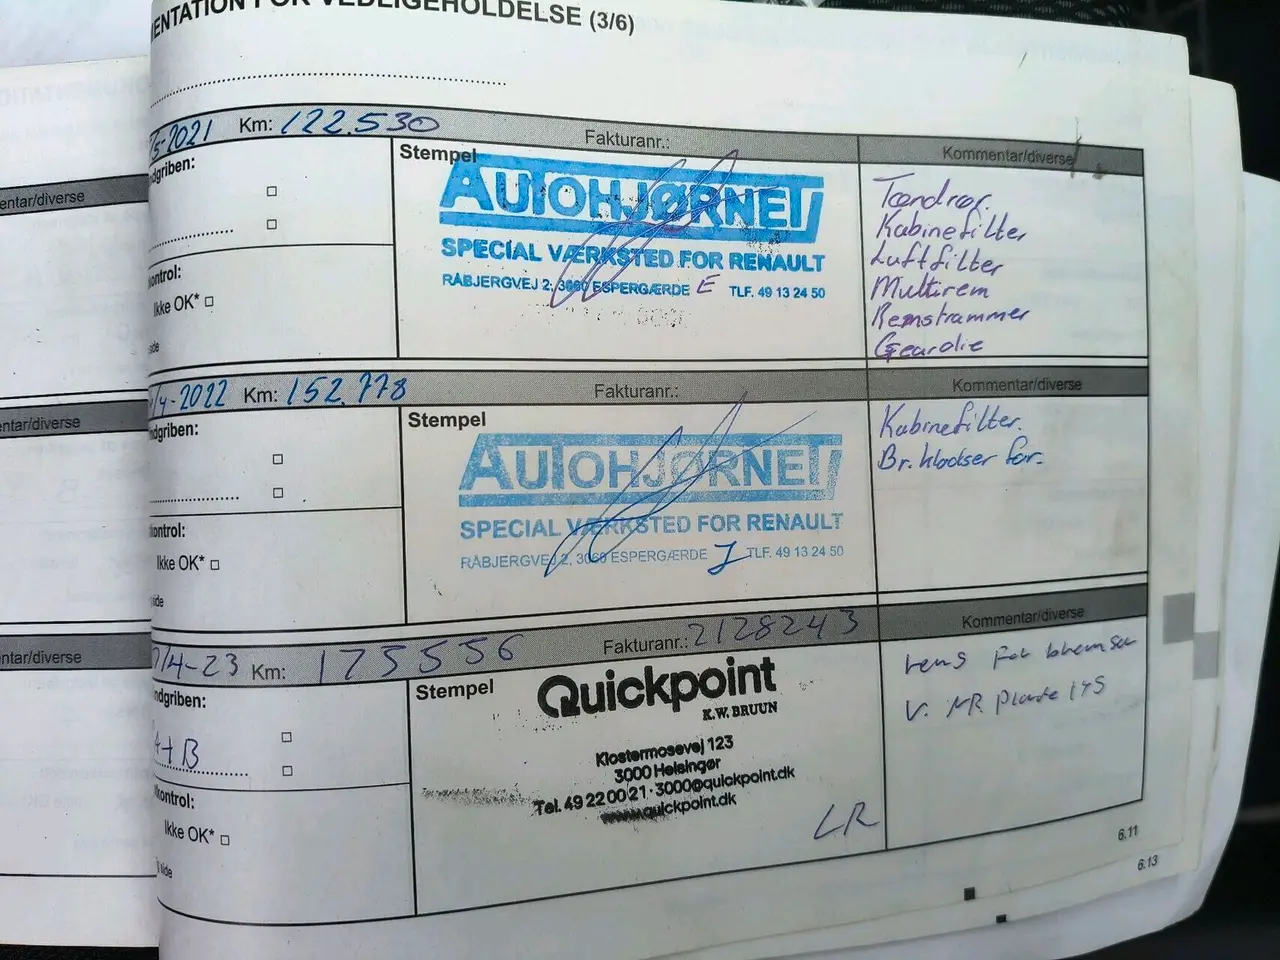 MENTATION FOR VEDLIGEHOLDELSE (3/6)
/5-2021 Km: 122.530 Fakturanr.: Kommentar/diverse
ndgriben:
Stempel
AUTOHJØRNET
SPECIAL VÆRKSTED FOR RENAULT
RÅBJERGVEJ 2, 3060 ESPERGÆRDE E TLF. 49 13 24 50
Tændrør.
Kabinefilter
Luftfilter
Multirem
Remstrammer
Gearolie
kontrol:
Ikke OK*
side
entar/diverse
/4-2022 Km: 152.778 Fakturanr.: Kommentar/diverse
ndgriben:
Stempel
AUTOHJØRNET
SPECIAL VÆRKSTED FOR RENAULT
RÅBJERGVEJ 2, 3060 ESPERGÆRDE TLF. 49 13 24 50
Kabinefilter.
Br. klodser for.
kontrol:
Ikke OK*
side
entar/diverse
/4-23 Km: 175556 Fakturanr.: 2128243 Kommentar/diverse
ndgriben:
A+B
Stempel
Quickpoint
K.W. BRUUN
Klostermosevej 123
3000 Helsingør
Tel. 49 22 00 21 · 3000@quickpoint.dk
www.quickpoint.dk
LR
rens For bremser
V. NR Plade
kontrol:
Ikke OK*
side
ntar/diverse
6.11
6.13